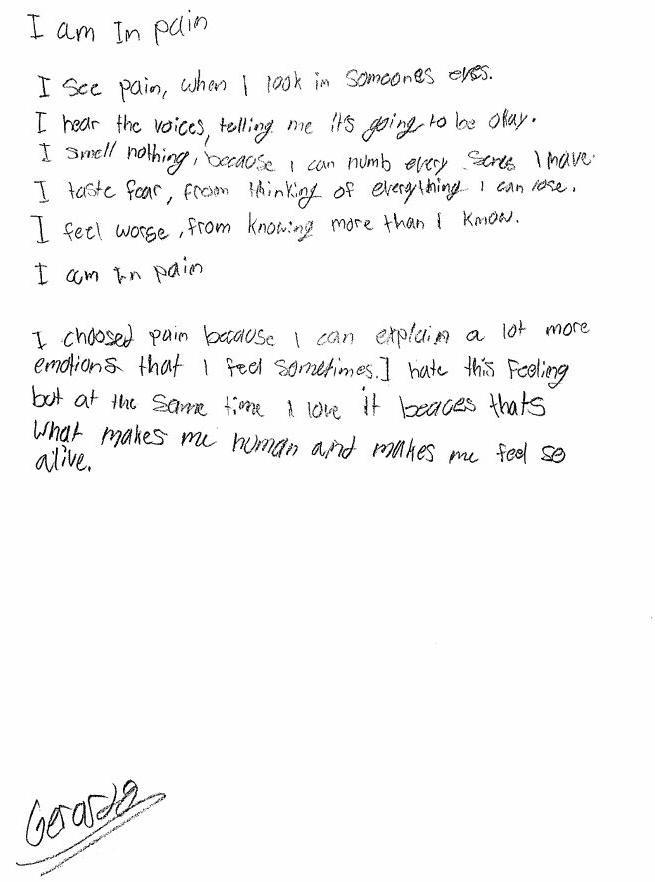 I am In pain
I see pain, when I look in someones eyes.
I hear the voices, telling me it's going to be okay.
I smell nothing, because I can numb every I have.
I taste fear, from thinking of everything I can lose.
I feel worse, from knowing more than I know.
I am In pain
I choosed pain because I can explain a lot more
emotions that I feel sometimes. I hate this feeling
but at the same time I love it beaces thats
what makes me human and makes me feel so
alive.